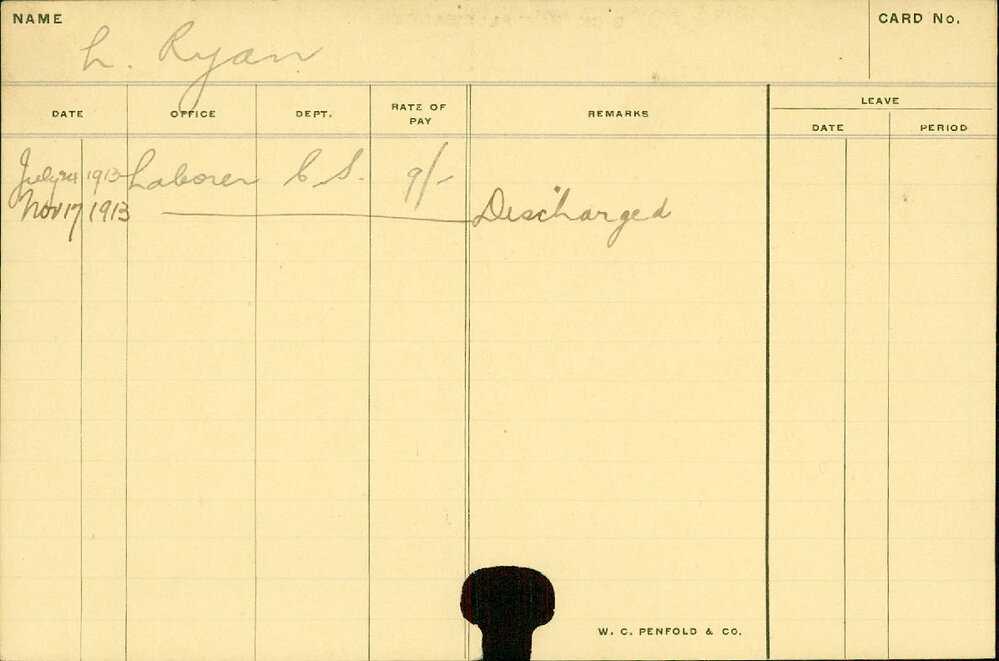 NAME
L. Ryan
CARD No.
DATE OFFICE DEPT. RATE OF PAY REMARKS LEAVE
DATE PERIOD
July 24 1913 Laborer C S. 9/-
Nov 17 1913 Discharged
W. C. PENFOLD & CO.